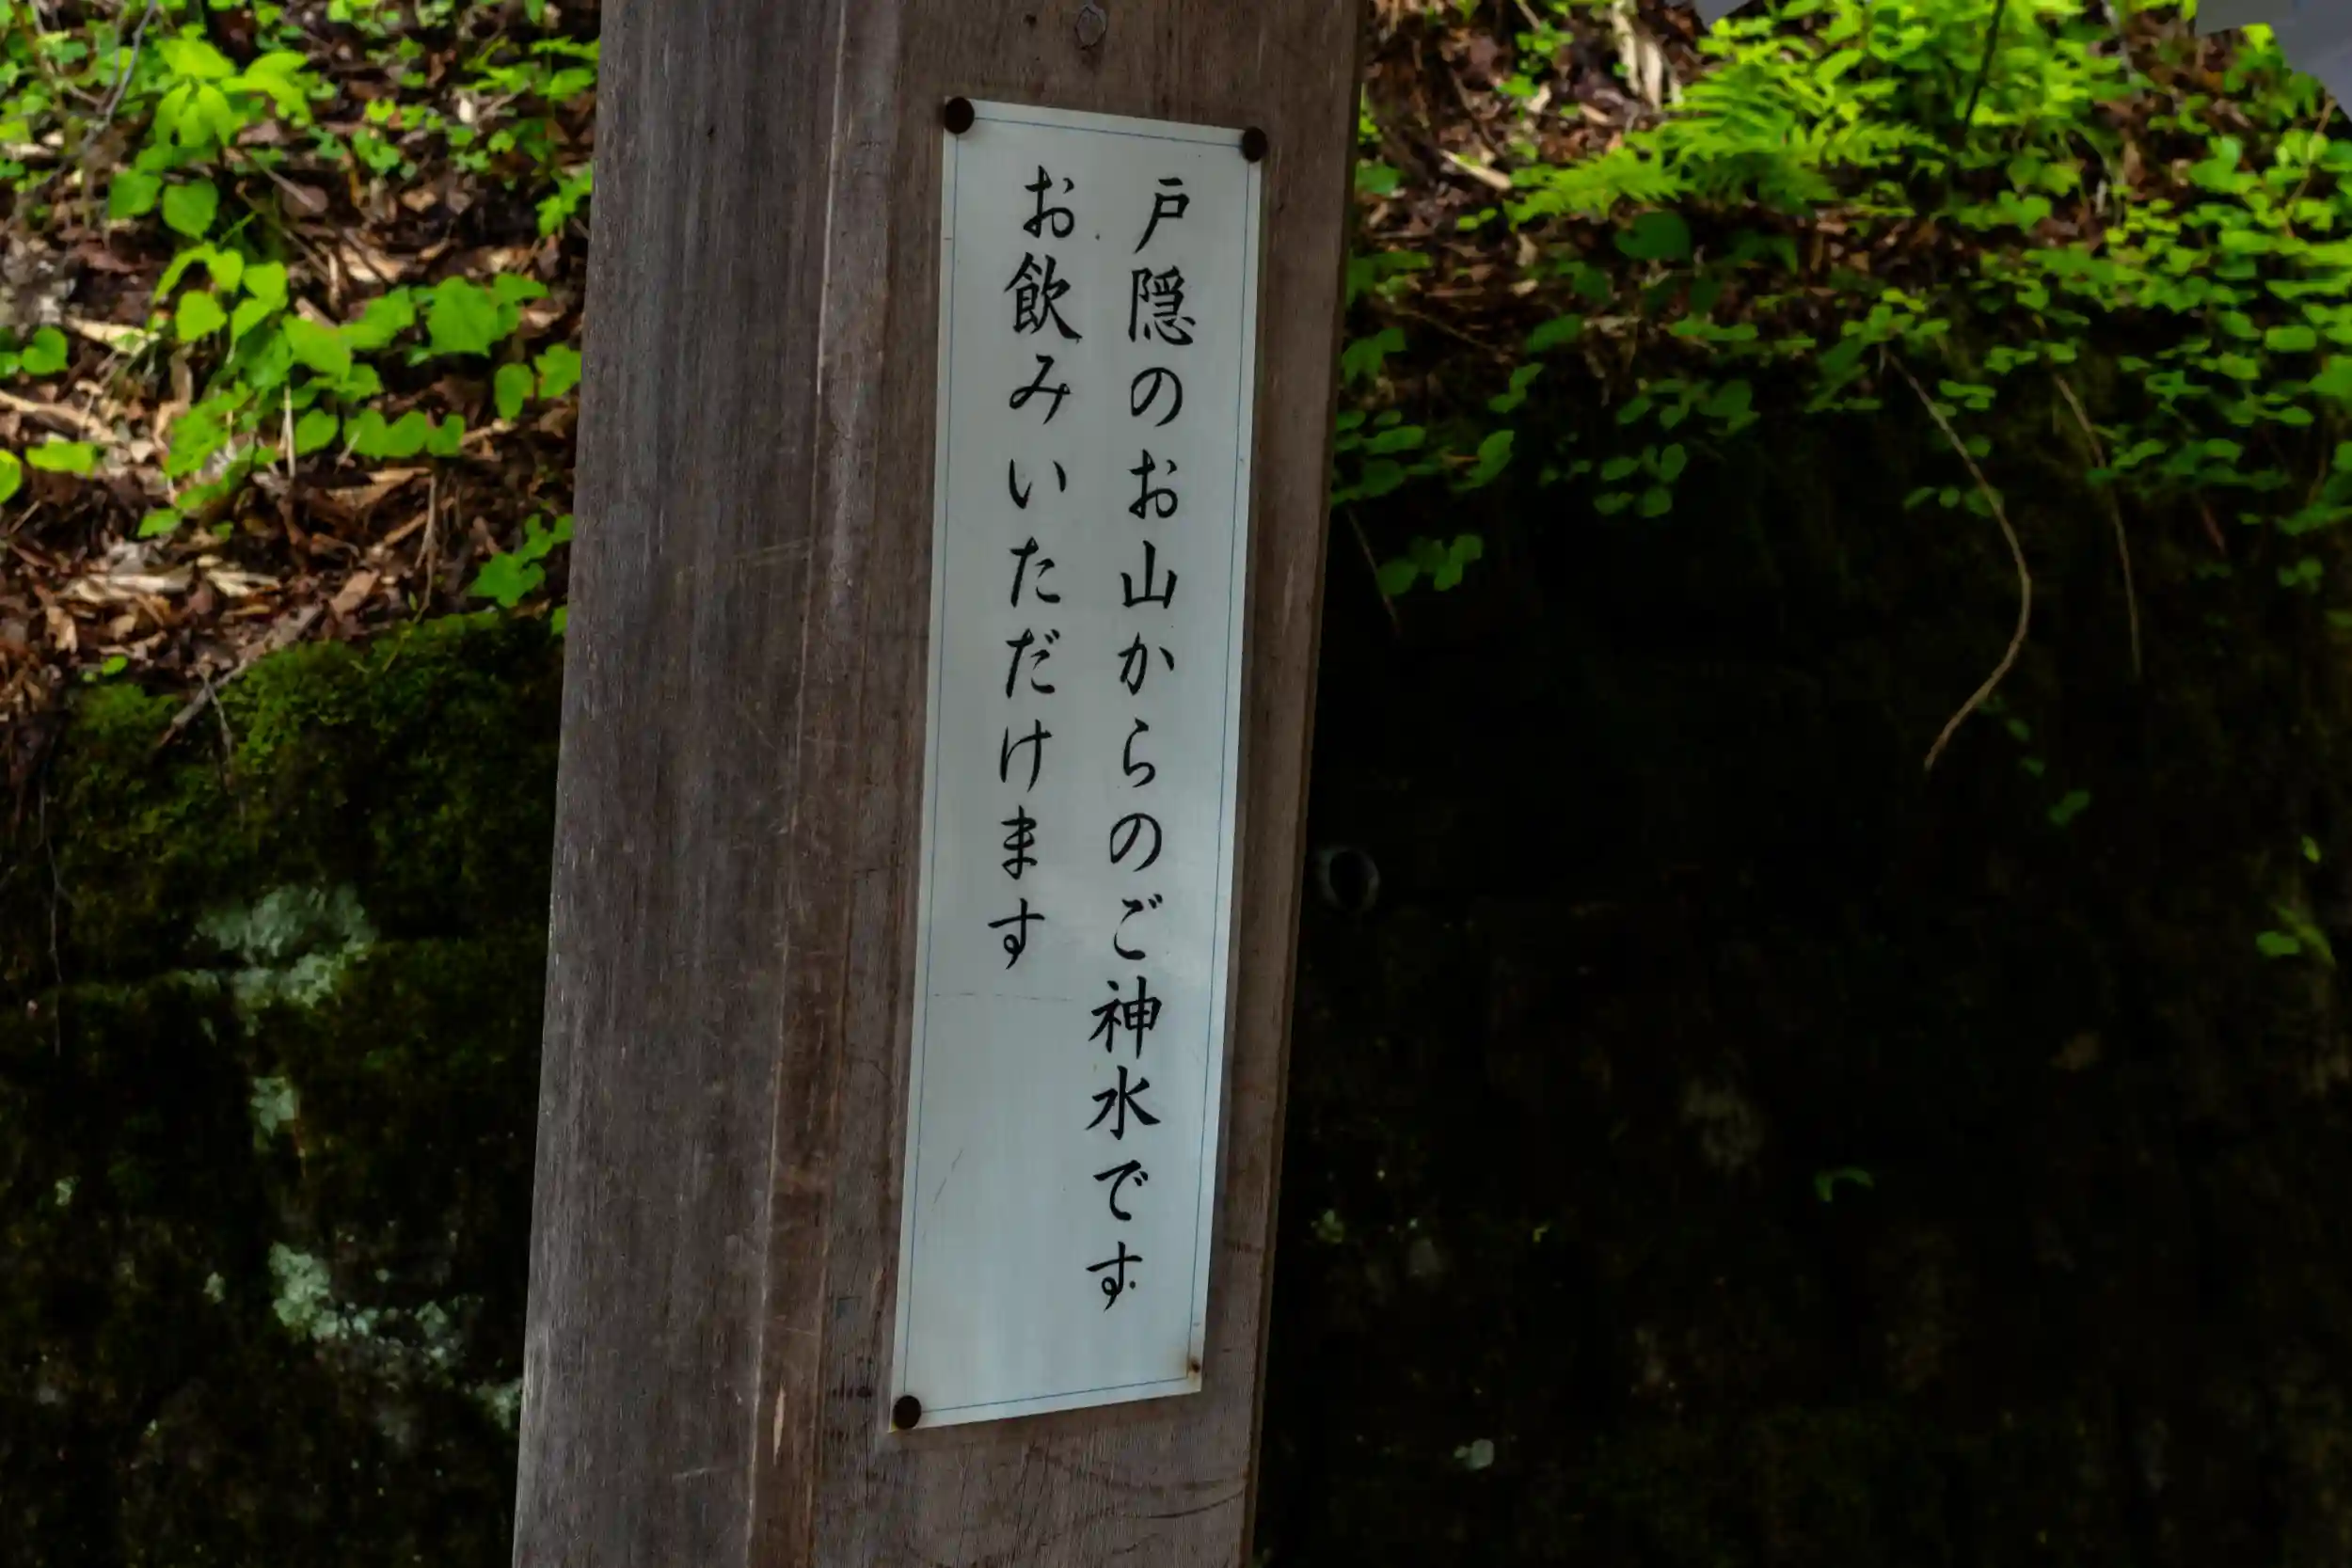 戸隠のお山からのご神水です
お飲みいただけます